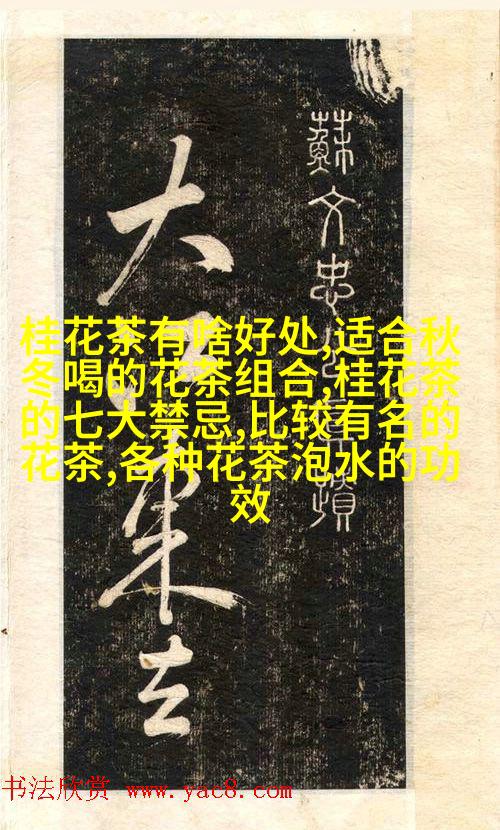 蘇文忠
大
東去
桂花茶有啥好处,适合秋
冬喝的花茶组合,桂花茶
的七大禁忌,比较有名的
花茶,各种花茶泡水的功
效
书法欣赏 www.yac8.com